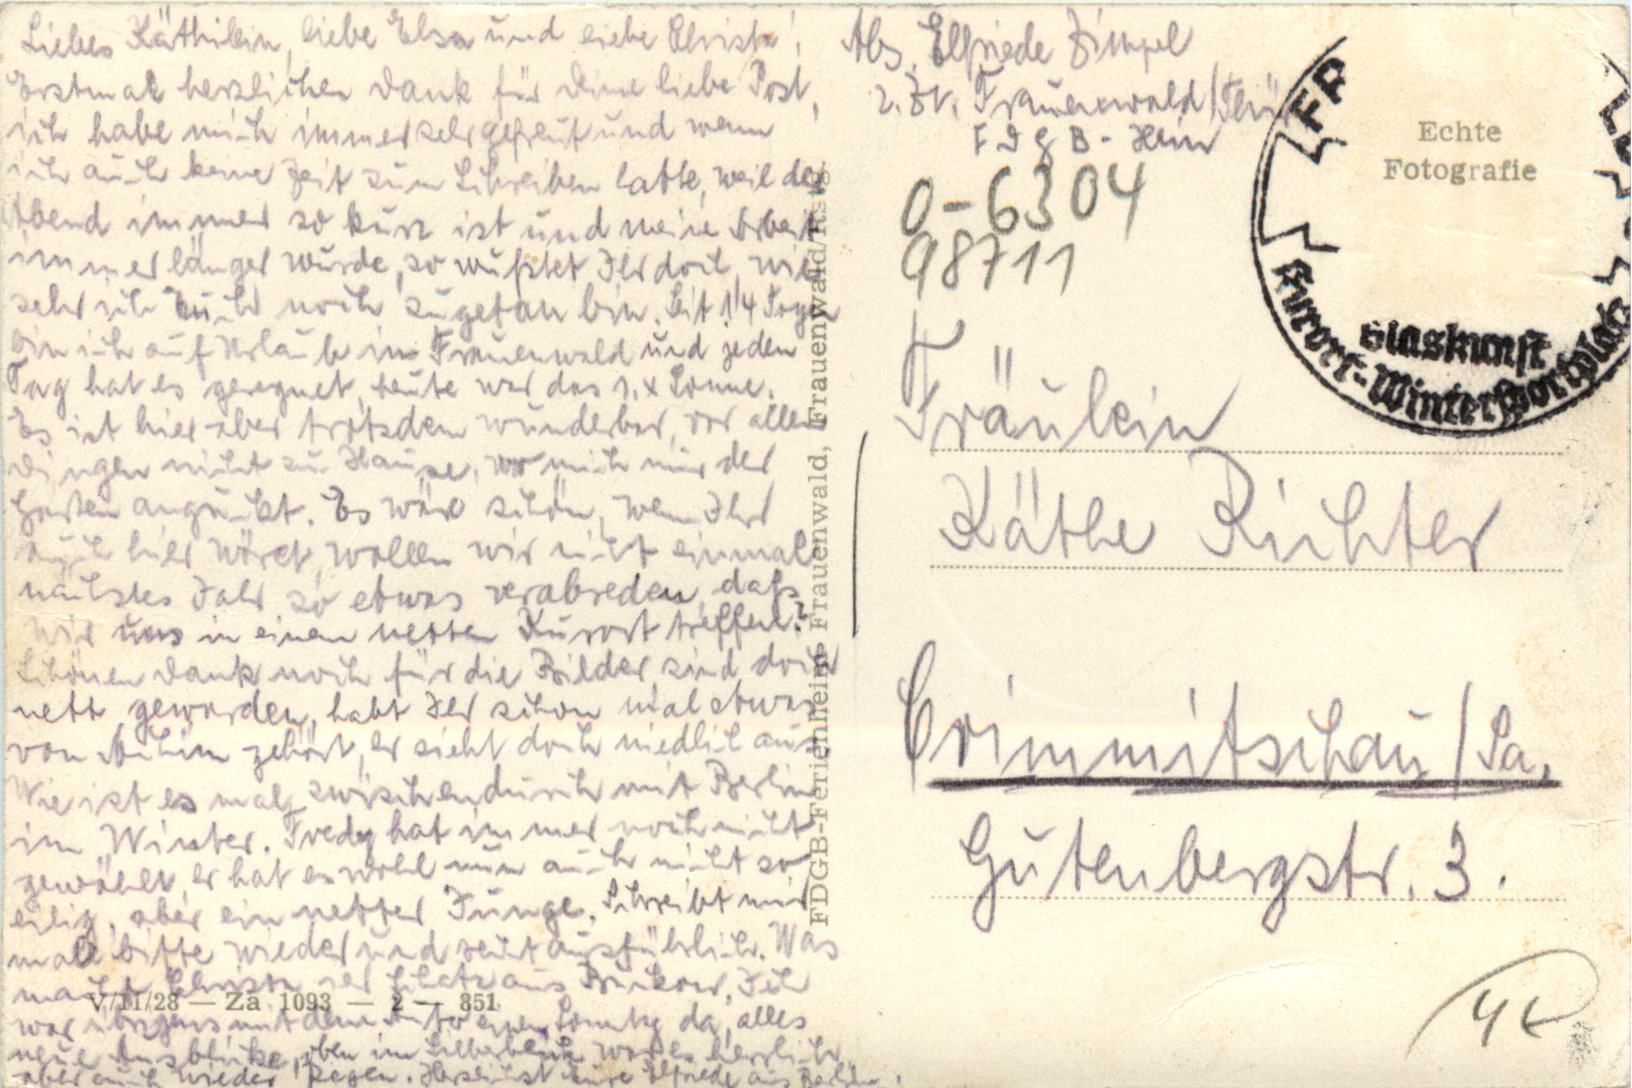 Liebes Käthilein, liebe Elsa und liebe Christa!
Erstmal herzlichen Dank für Deine liebe Post,
ich habe mich immer sehr gefreut und wenn
ich auch keine Zeit zum Schreiben hatte, weil der
Abend immer so kurz ist und meine Arbeit
immer länger wurde, so wußtet Ihr doch, wie
sehr ich Euch noch zugetan bin. Seit 14 Tagen
bin ich auf Urlaub in Frauenwald und jeden
Tag hat es geregnet, heute war das 1. x Sonne.
Es ist hier aber trotzdem wunderbar, vor allen
Dingen nicht zu Hause, wo mich nur der
Garten anguckt. Es wäre schön, wenn Ihr
auch hier wäret, wollen wir nicht einmal
nächstes Jahr so etwas verabreden, daß
wir uns in einem netten Kurort treffen?
Schönen Dank noch für die Bilder sind doch
nett geworden, habt Ihr schon mal etwas
von gehört, er sieht doch niedlich aus
Wie ist es mal zwischendurch mit Berlin
im Winter. hat immer noch nicht
gewählt, er hat es wohl nun auch nicht so
eilig, aber ein netter Junge. Schreibt mir
mal bitte wieder und recht ausführlich. Was
macht Christa, der Schatz aus Ich
war übrigens mit dem Auto einen Sonntag da, alles
neue Ausblicke, oben im war es herrlich
aber auch wieder Regen. Herzlichst Eure Elfriede aus Berlin.
V/11/28 — Za 1093 — 2 — 851
FDGB-Ferienheime Frauenwald, Frauenwald/Rstg.
Abs. Elfriede Zimpel
z. Zt. Frauenwald/Thür
FDGB-Heim
O-6304
98711
Echte
Fotografie
Glaskunst
Kurort-Wintersportplatz
Fräulein
Käthe Richter
Crimmitschau/Sa.
Gutenbergstr. 3.